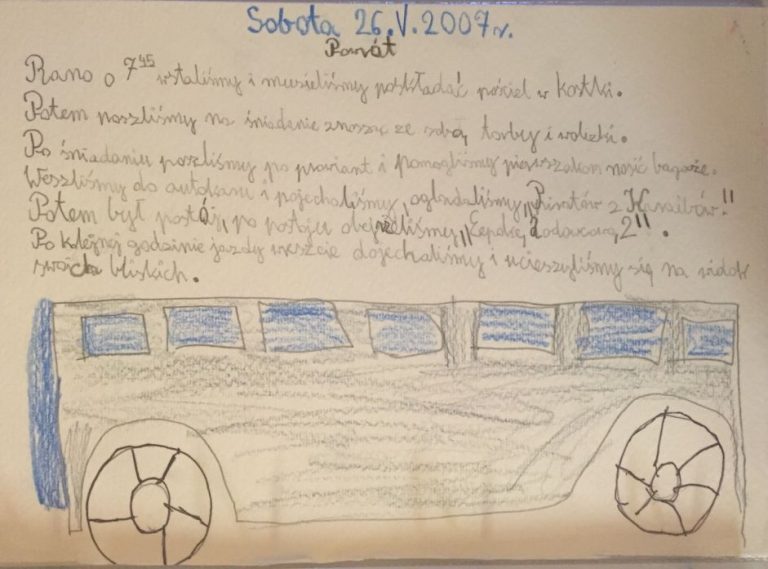 Sobota 26.V.2007r.
Powrót
Rano o 7⁴⁵ wstaliśmy i musieliśmy poskładać pościel w kostki.
Potem poszliśmy na śniadanie znosząc ze sobą torby i walizki.
Po śniadaniu poszliśmy po prowiant i pomogliśmy pierwszakom nosić bagaże.
Weszliśmy do autokaru i pojechaliśmy, oglądaliśmy „Piratów z Karaibów."
Potem był postój, po postoju obejrzeliśmy „Epokę Lodowcową 2".
Po kolejnej godzinie jazdy wreszcie dojechaliśmy i ucieszyliśmy się na widok
swoich bliskich.